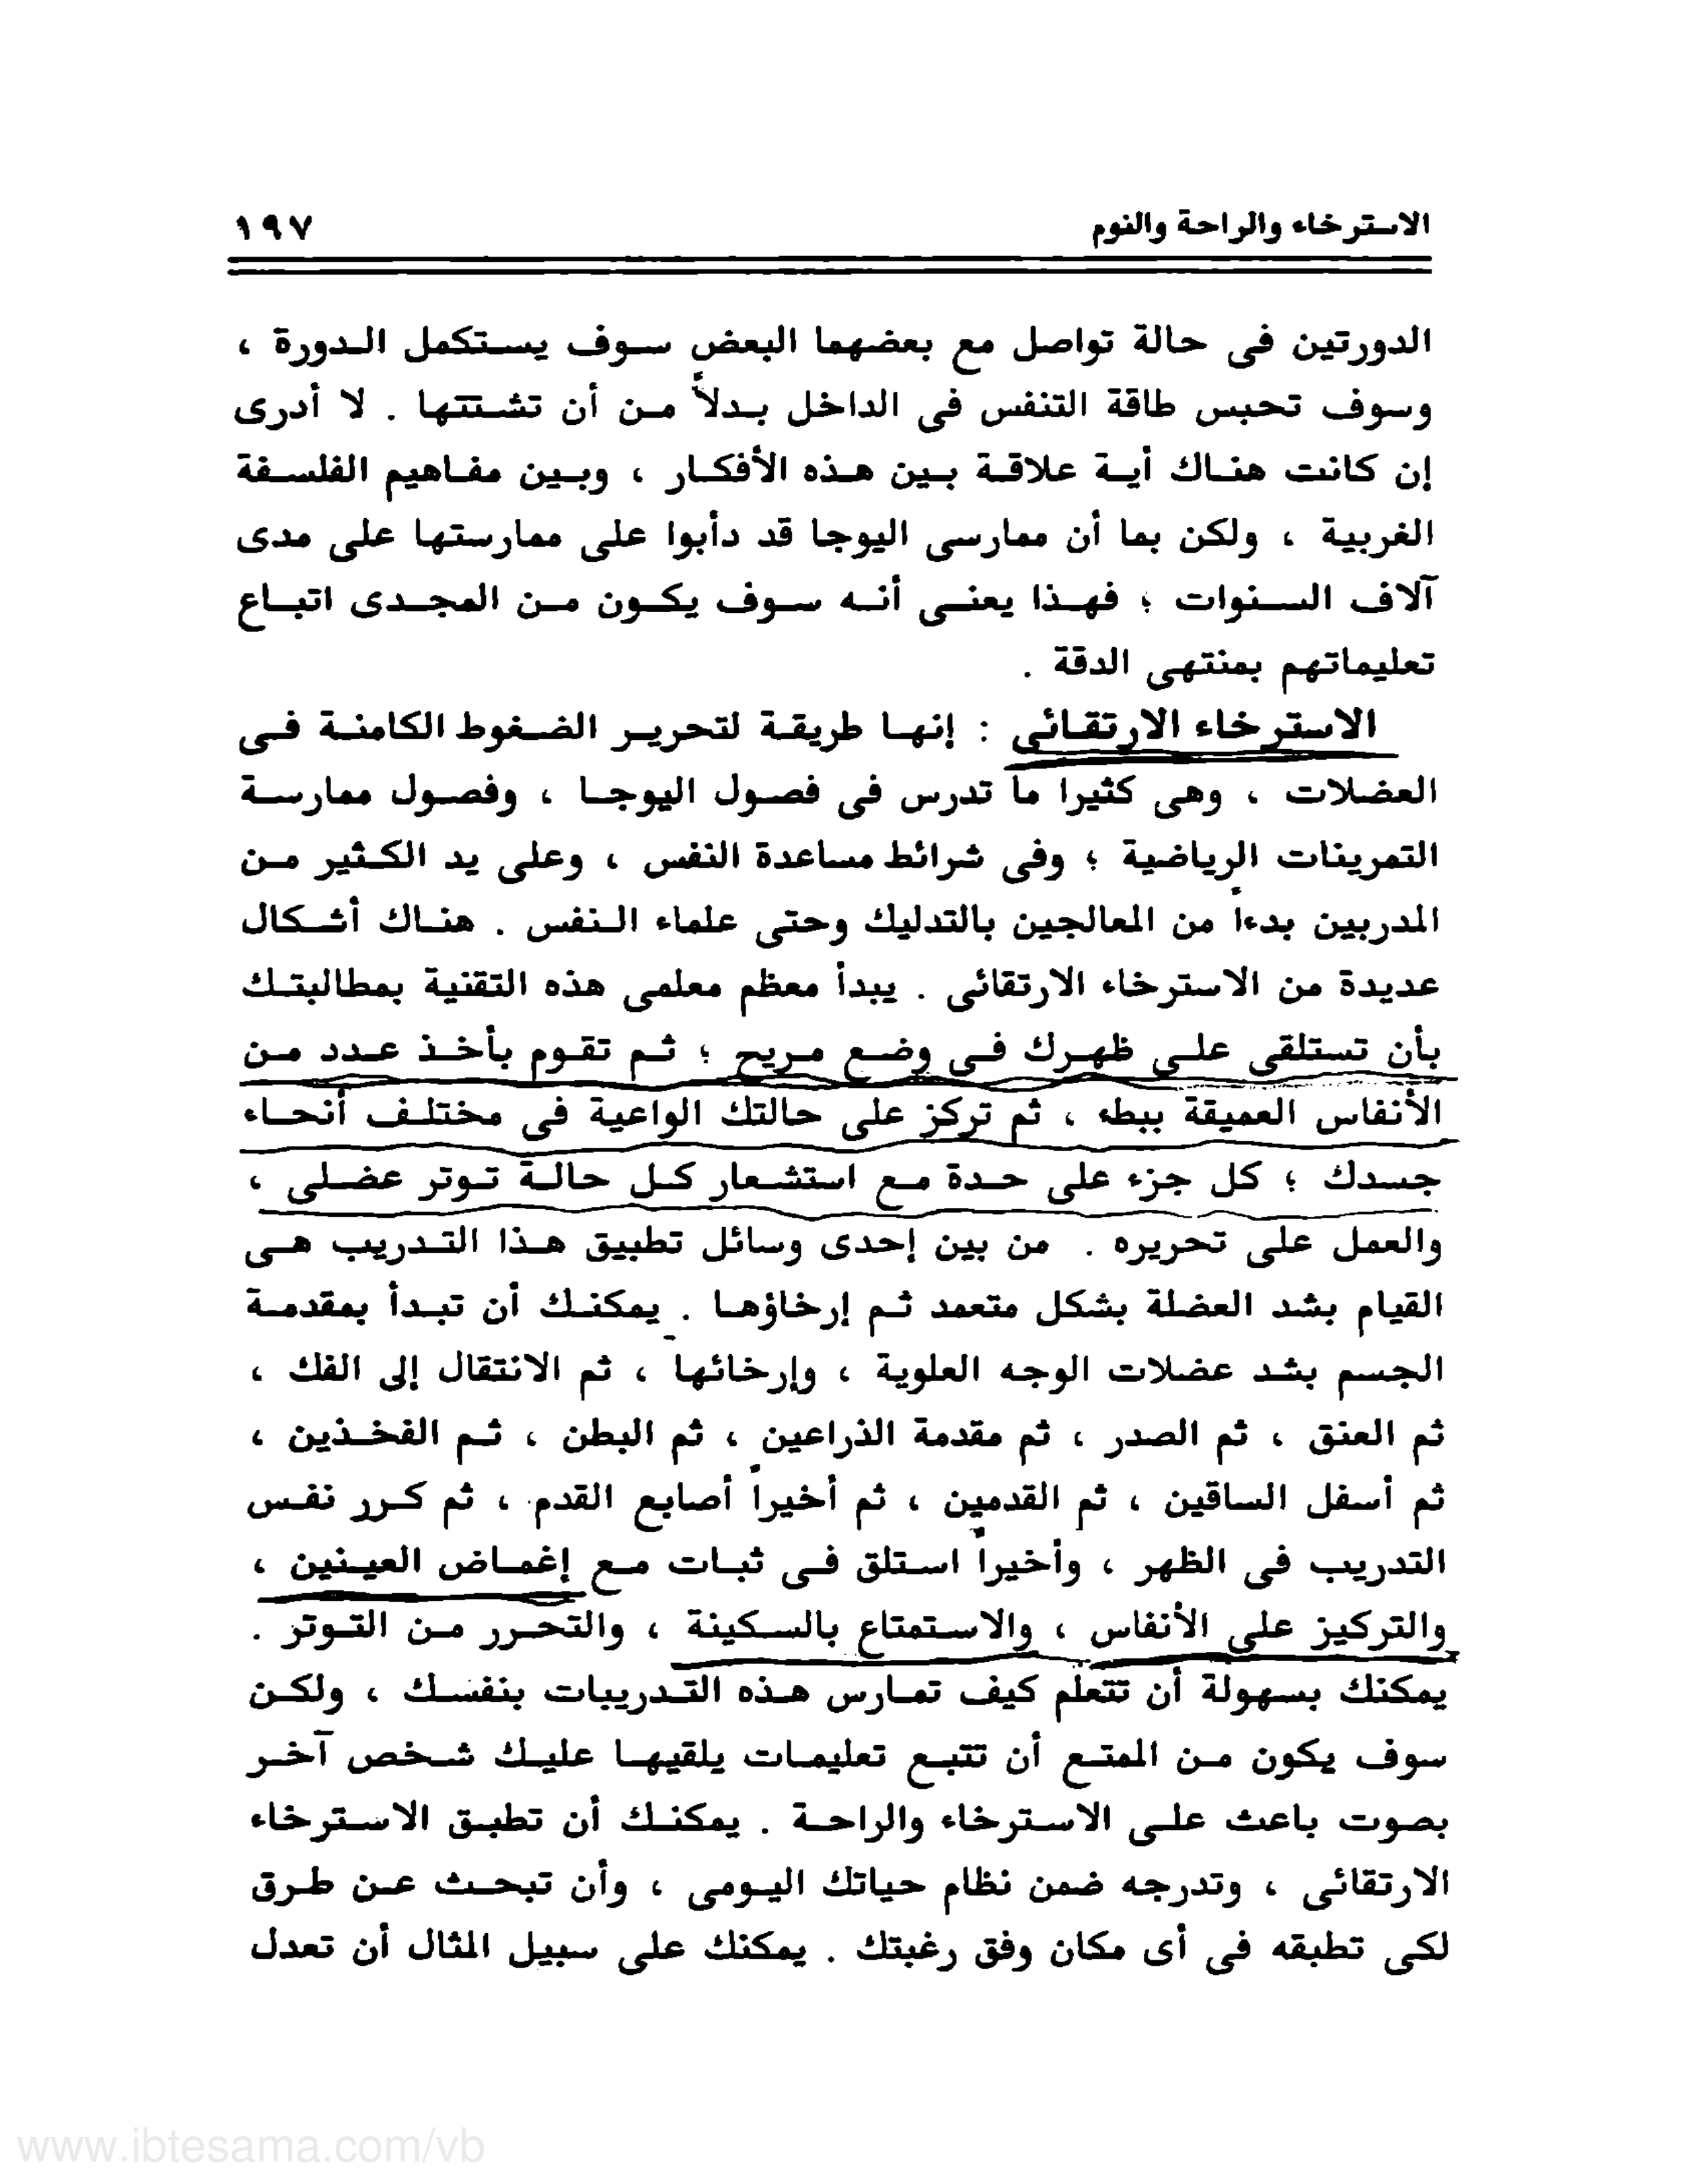 الاسترخاء والراحة والنوم ١٩٧
الدورتين فى حالة تواصل مع بعضهما البعض سوف يستكمل الدورة ،
وسوف تحبس طاقة التنفس فى الداخل بدلاً من أن تشتتها . لا أدرى
إن كانت هناك أية علاقة بين هذه الأفكار ، وبين مفاهيم الفلسفة
الغربية ، ولكن بما أن ممارسى اليوجا قد دأبوا على ممارستها على مدى
آلاف السنوات ؛ فهذا يعنى أنه سوف يكون من المجدى اتباع
تعليماتهم بمنتهى الدقة .
الاسترخاء الارتقائى : إنها طريقة لتحرير الضغوط الكامنة فى
العضلات ، وهى كثيرا ما تدرس فى فصول اليوجا ، وفصول ممارسة
التمرينات الرياضية ؛ وفى شرائط مساعدة النفس ، وعلى يد الكثير من
المدربين بدءاً من المعالجين بالتدليك وحتى علماء النفس . هناك أشكال
عديدة من الاسترخاء الارتقائى . يبدأ معظم معلمى هذه التقنية بمطالبتك
بأن تستلقى على ظهرك فى وضع مريح ؛ ثم تقوم بأخذ عدد من
الأنفاس العميقة ببطء ، ثم تركز على حالتك الواعية فى مختلف أنحاء
جسدك ؛ كل جزء على حدة مع استشعار كل حالة توتر عضلى ،
والعمل على تحريره . من بين إحدى وسائل تطبيق هذا التدريب هى
القيام بشد العضلة بشكل متعمد ثم إرخاؤها . يمكنك أن تبدأ بمقدمة
الجسم بشد عضلات الوجه العلوية ، وإرخائها ، ثم الانتقال إلى الفك ،
ثم العنق ، ثم الصدر ، ثم مقدمة الذراعين ، ثم البطن ، ثم الفخذين ،
ثم أسفل الساقين ، ثم القدمين ، ثم أخيراً أصابع القدم ، ثم كرر نفس
التدريب فى الظهر ، وأخيراً استلق فى ثبات مع إغماض العينين ،
والتركيز على الأنفاس ، والاستمتاع بالسكينة ، والتحرر من التوتر .
يمكنك بسهولة أن تتعلم كيف تمارس هذه التدريبات بنفسك ، ولكن
سوف يكون من المتع أن تتبع تعليمات يلقيها عليك شخص آخر
بصوت باعث على الاسترخاء والراحة . يمكنك أن تطبق الاسترخاء
الارتقائى ، وتدرجه ضمن نظام حياتك اليومى ، وأن تبحث عن طرق
لكى تطبقه فى أى مكان وفق رغبتك . يمكنك على سبيل المثال أن تعدل
www.ibtesama.com/vb